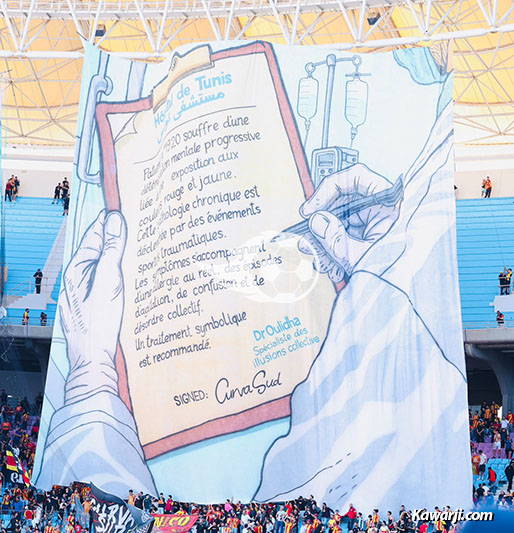 Hôpital de Tunis
مستشفى تونس
1920 souffre d'une
mentale progressive
liée exposition aux
rouge et jaune.
Cette pathologie chronique est
par des événements
traumatiques.
Les symptômes s'accompagnent
d'une allergie au réel, des épisodes
d'agitation, de confusion et de
désordre collectif.
Un traitement symbolique
est recommandé.
Dr Oulidha
Spécialiste des
illusions collective
SIGNED: Curva Sud
Kawarji.com